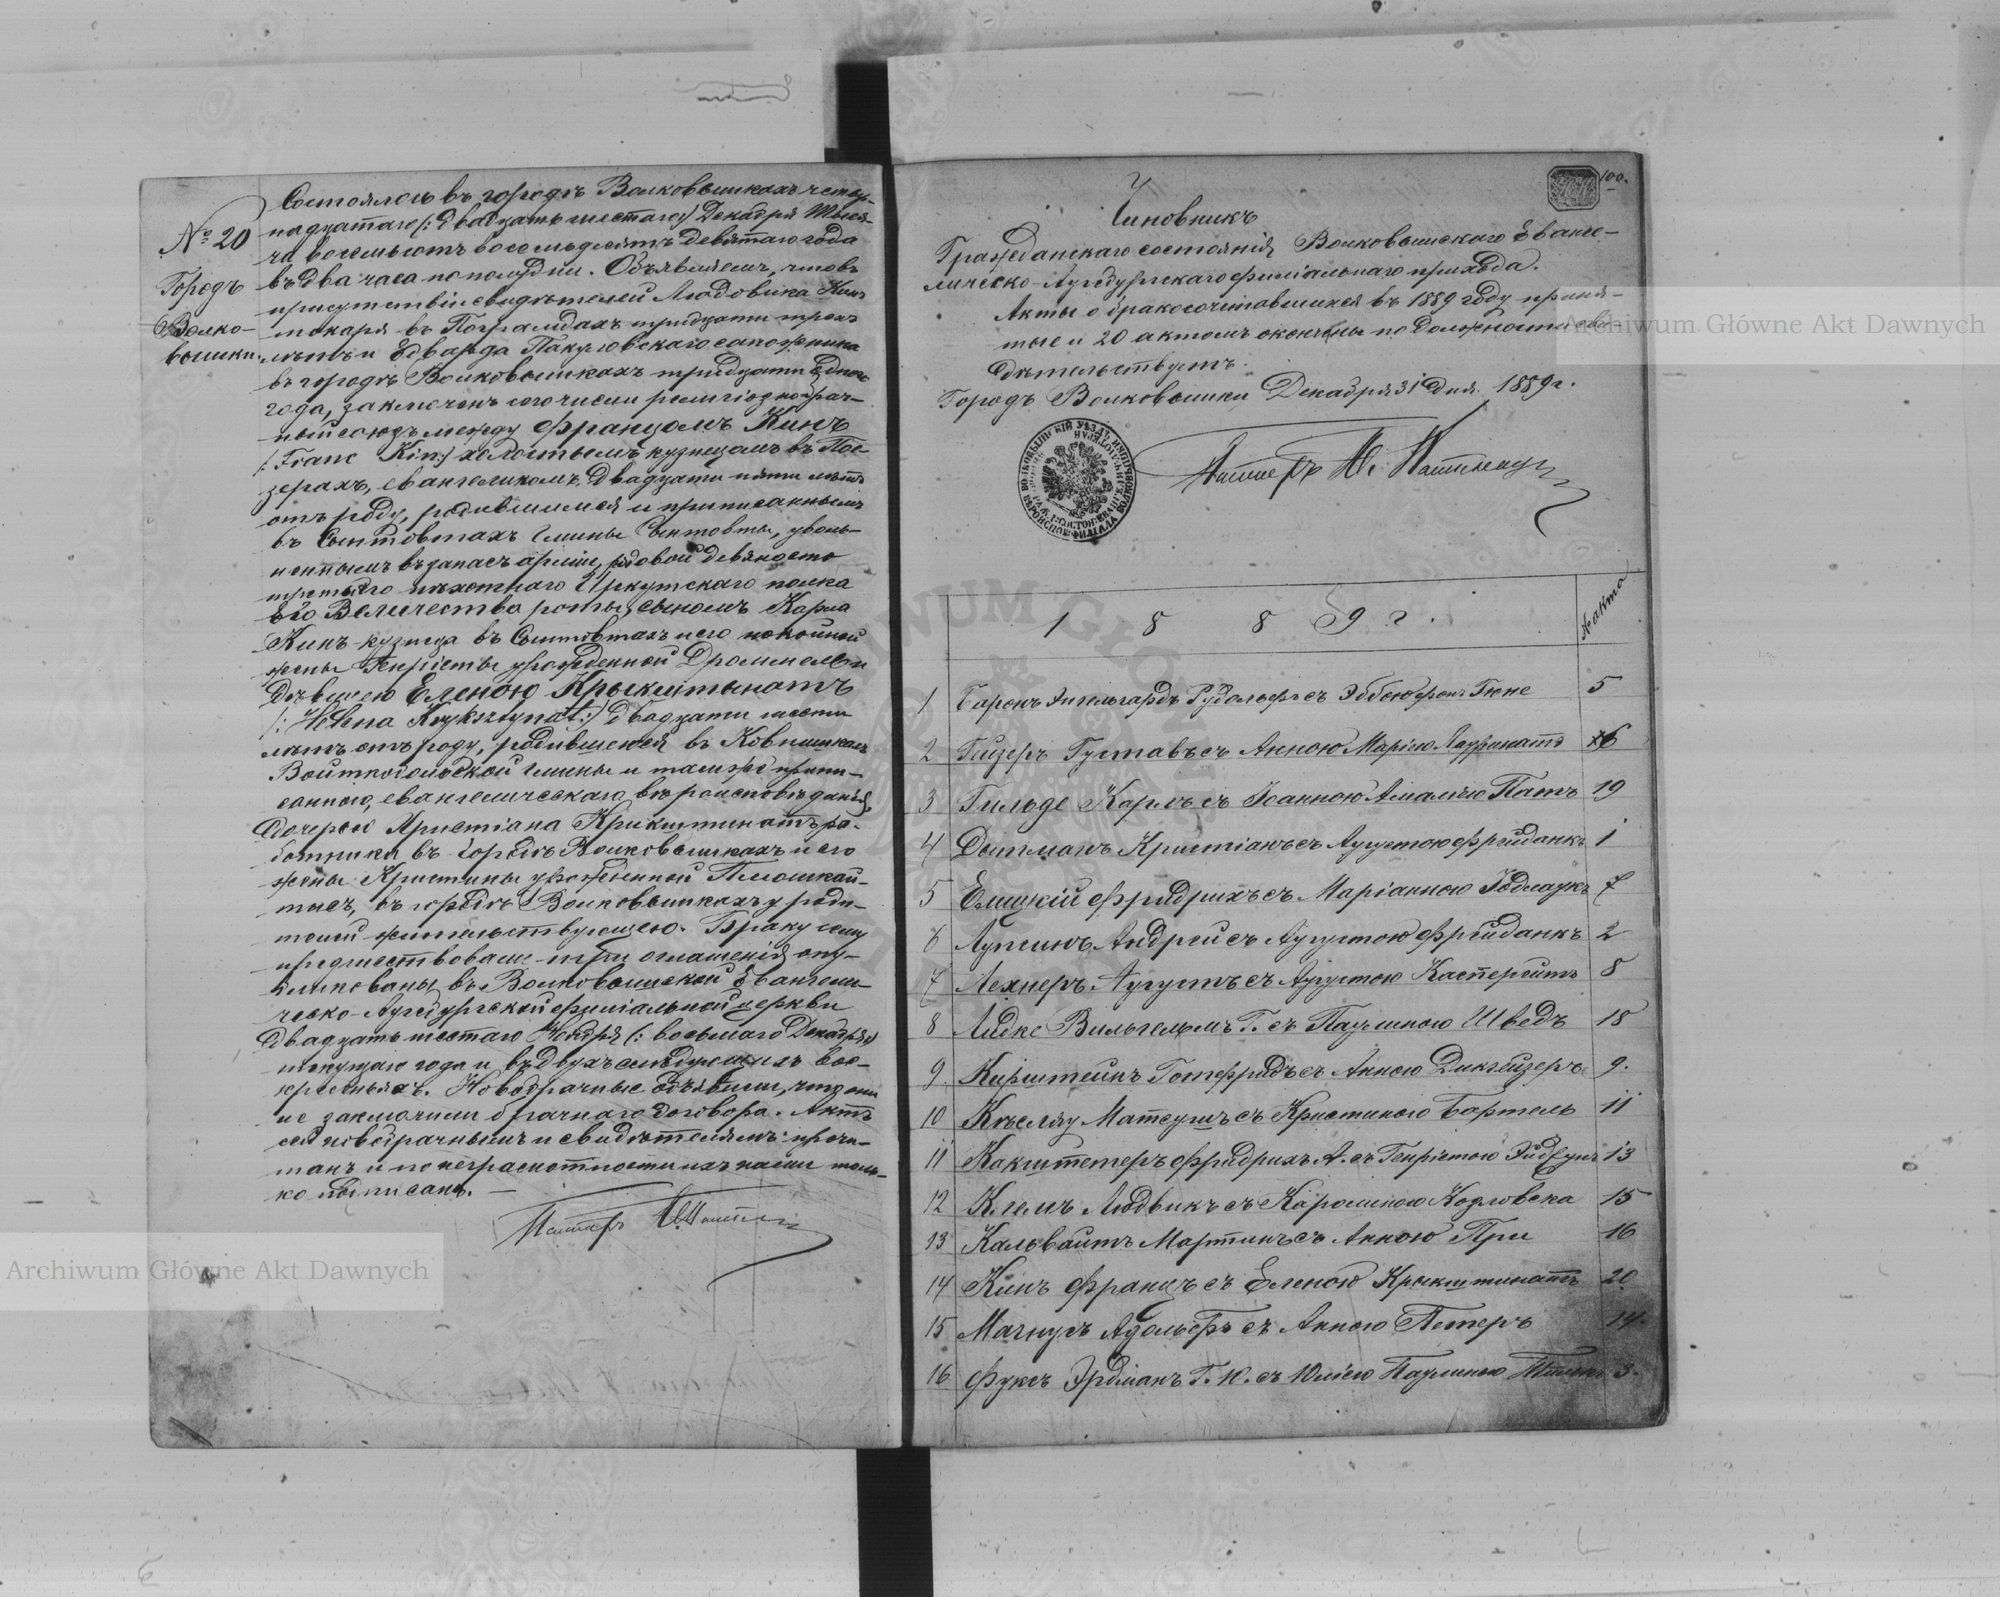 № 20
Городъ
Волко-
вышки.
Состоялось въ городѣ Волковышкахъ четыр-
надцатаго (: двадцать шестаго:) Декабря тыся-
ча восемьсотъ восемьдесятъ девятаго года
въ два часа пополудни. Объявляемъ, что въ
присутствіи свидѣтелей Людовика Кинъ
токаря въ тридцати трехъ
лѣтъ и Едварда сапожника
въ городѣ Волковышкахъ тридцати одного
года, заключенъ сего числа религіозно брач-
ный союзъ между Францомъ Кинъ
(: Franc Kin:) холостымъ кузнецомъ въ Пое-
зерахъ, евангеликомъ двадцати пяти лѣтъ
отъ роду, родившимся и приписаннымъ
въ Сынтовтахъ гмины Сынтовты, уволь-
неннымъ въ запасъ арміи, рядовой девяносто
третьяго пѣхотнаго Иркутскаго полка
Его Величества роты, сыномъ Карла
Кинъ кузнеца въ Сынтовтахъ и его покойной
жены Генріеты урожденной Дроммель и
дѣвицею Еленою Крыкштынатъ
(: Helena Kryksztynat:) двадцати шести
лѣтъ отъ роду, родившеюся в Ковнишкахъ
Войткобольской гмины и тамъ же припи-
санною, евангелическаго вѣроисповѣданія,
дочерью Христіана Крикштинатъ ра-
ботника въ городѣ Волковышкахъ и его
жены Христины урожденной
въ городѣ Волковышкахъ у роди-
телей жительствующею. Браку сему
предшествовали три оглашенія опу-
бликованы въ Волковышской Евангели-
ческо-Аугсбургской филіальной церкви
двадцать шестаго Ноября (: восьмаго Декабря:)
текущаго года и въ двухъ слѣдующихъ вос-
кресеньяхъ. Новобрачные объявили, что они
не заключили брачнаго договора. Актъ
сей новобрачнымъ и свидѣтелямъ прочи-
танъ и по неграмотности ихъ нами толь-
ко подписанъ. —
Пасторъ
100.
Чиновникъ
Гражданскаго состоянія Волковышскаго Еванге-
лическо-Аугсбургскаго филіальнаго прихода.
Акты о бракосочетавшихся въ 1889 году приня-
тые и 20 актомъ окончены по должности сви-
дѣтельствуетъ.
Городъ Волковышки Декабря 31 дня 1889 г.
Пасторъ
1 8 8 9 г.
№ акта
1 Баронъ Энгельгардъ Рудольфъ съ Эббою фонъ Гюне 5
2 Гицеръ Густавъ съ Анною Маріею 6
3 Гильде Карлъ съ Іоанною Амаліею Патъ 19
4 Дотманъ Христіанъ съ Аугустою Фрейданкъ 1
5 Елицкій Фридрихъ съ Маріанною 7
6 Андрей съ Аугустою Фрейданкъ 2
7 Лехнеръ Аугустъ съ Аугустою Касперейтъ 8
8 Лидке Вильгельмъ Г. съ Паулиною Шведъ 18
9. Кирштейнъ Готфридъ съ Анною 9.
10 Матеушъ съ Христиною Бартель 11
11 Какштетеръ Фридрихъ А. съ Генріетою 13
12 Клемъ Людвикъ съ Каролиною Козловска 15
13 Кальвайтъ Мартинъ съ Анною При 16
14 Кинъ Францъ съ Еленою Крыкштинатъ 20
15 Магнусъ Адольфъ съ Анною Петеръ 14.
16 Фуксъ Эрдманъ Г. Ю. съ Юліею Паулиною 3.
Archiwum Główne Akt Dawnych
Archiwum Główne Akt Dawnych